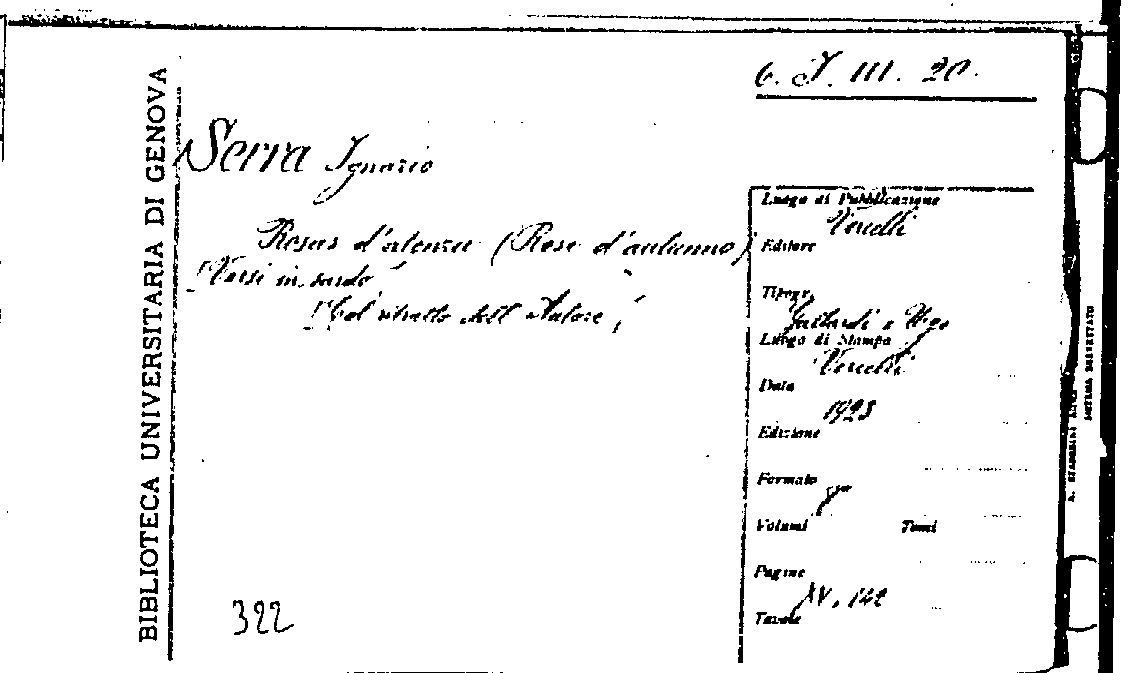 6. J. III. 20.
BIBLIOTECA UNIVERSITARIA DI GENOVA
Serra Ignazio
Rosas d'atonzu (Rose d'autunno)
Versi in sardo
Col ritratto dell'Autore
Luogo di Pubblicazione
Vercelli
Editore
Tipogr.
Gallardi e Ugo
Luogo di Stampa
Vercelli
Data
1923
Edizione
Formato
8°
Volumi Tomi
Pagine
XV, 142
Tavole
322